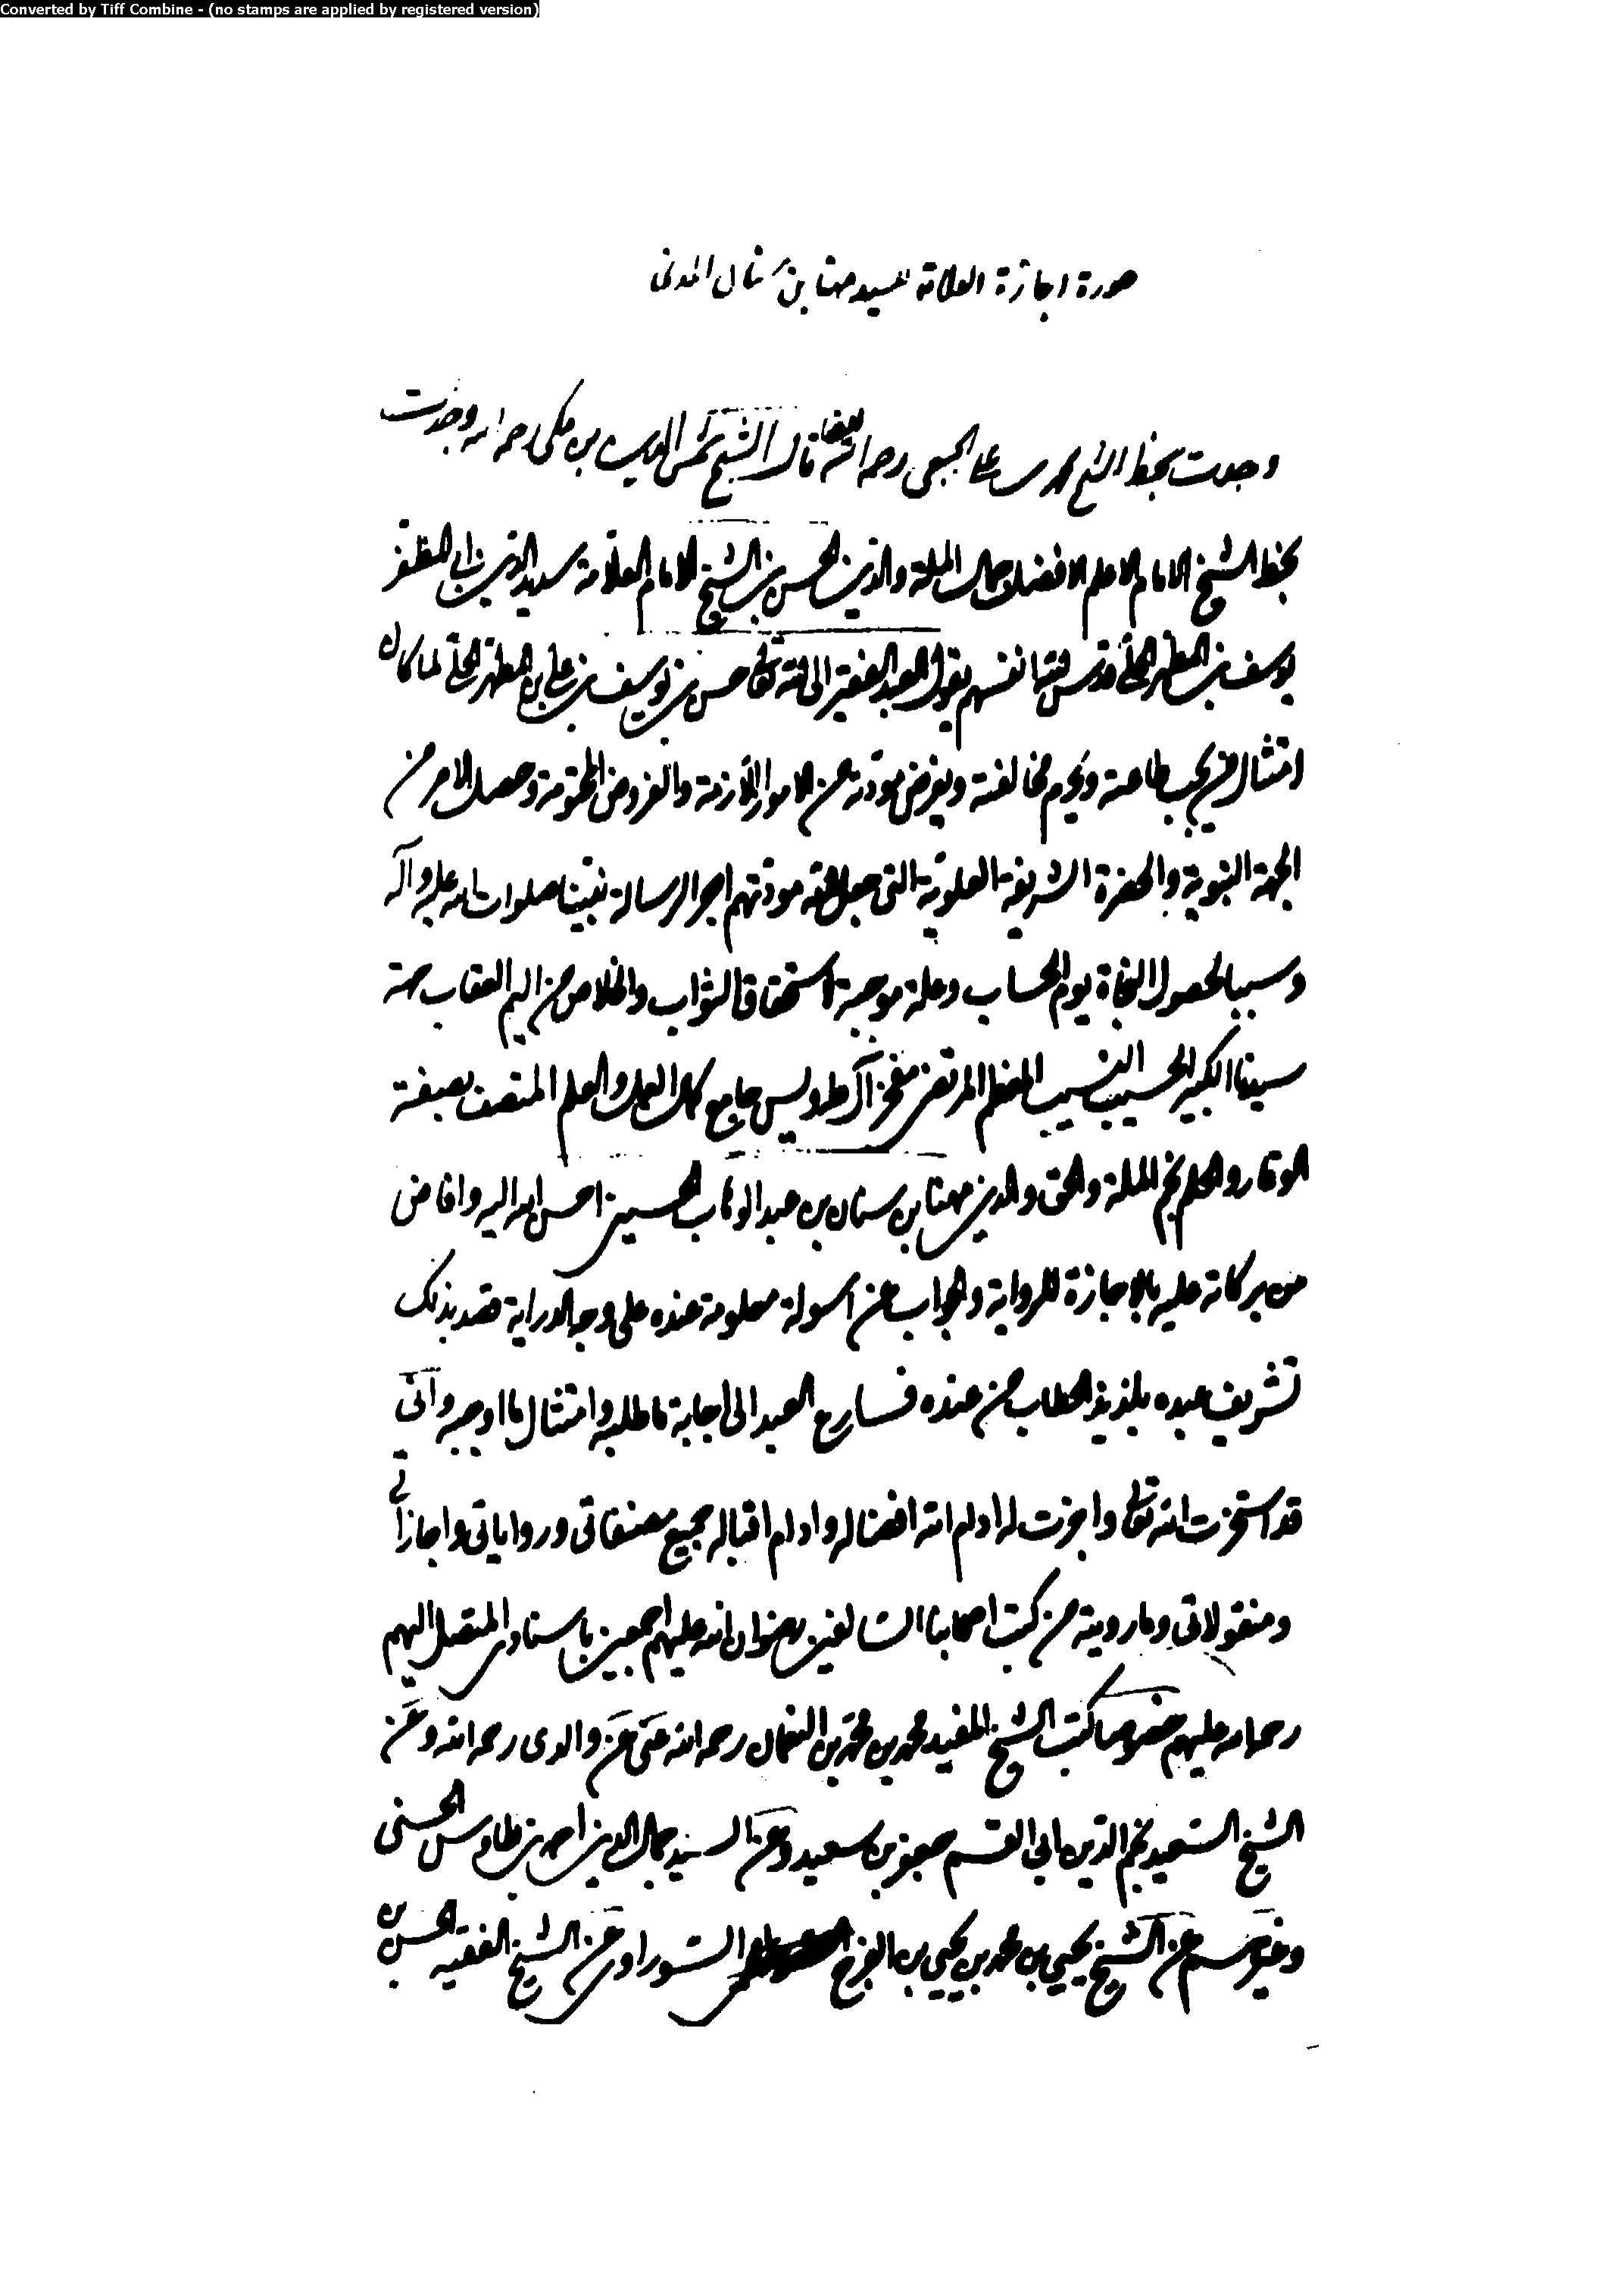 Converted by Tiff Combine - (no stamps are applied by registered version)
صورة اجازة العلامة للسيد مهنا بن سنان المدنى
وجدت بخط الشيخ محمد بن على الجبعى رحمه الله قال الشيخ شمس الدين بن مكى رحمه الله وجدت
بخط الشيخ الامام الاعلم الافضل جمال الملة والدين الحسن بن الشيخ الامام العلامة سديد الدين ابى المظفر
يوسف بن المطهر الحلى قدس الله نفسه يقول العبد الفقير الى الله تعالى حسن بن يوسف بن على بن المطهر الحلى لما كان
امتثال من يجب طاعته ويحرم مخالفته ويفرض مودته من الامور اللازمة والفروض المحتومة وحصل الامر من
الجهة النبوية والحضرة الشريفة العلوية التى جعل الله مودتهم اجر الرسالة نبينا صلوات الله عليه وآله
وسببا لحصول النجاة يوم الحساب وعلة موجبة استحقاق الثواب والخلاص من اليم العقاب جهة
سيدنا الكبير الحسيب النسيب المعظم المرتضى مفخر آل طه ويس جامع كمال العمل والعلم المتصف بصفتة
الوقار والحلم نجم الملة والحق والدين مهنا بن سنان بن عبد الوهاب الحسينى احسن الله اليه وافاض
من بركاته عليه بالاجازة للرواية والجواب عن اسولة معلومة عنده على وجه الدراية قصد بذلك
تشريف عبده بلذيذ الخطاب من عنده فسارع العبد الى اجابة ما طلبه وامتثال ما اوجبه وانى
قد استخرت الله تعالى واجزت له ادام الله افضاله وادام اقباله جميع مصنفاتى ورواياتى واجازاتى
ومنقولاتى وما رويته من كتب اصحابنا السالفين رضوان الله عليهم اجمعين باسنادى المتصل اليهم
رحمة الله عليهم خصوصا كتب الشيخ المفيد محمد بن محمد بن النعمان رحمه الله عنى عن والدى رحمه الله وعن
الشيخ السعيد نجم الدين ابى القسم جعفر بن سعيد وعن السيد جمال الدين احمد بن طاوس الحسنى
وغيرهم عن الشيخ يحيى بن محمد بن يحيى بن الفرج السوراوى عن الشيخ الفقيه الحسن بن